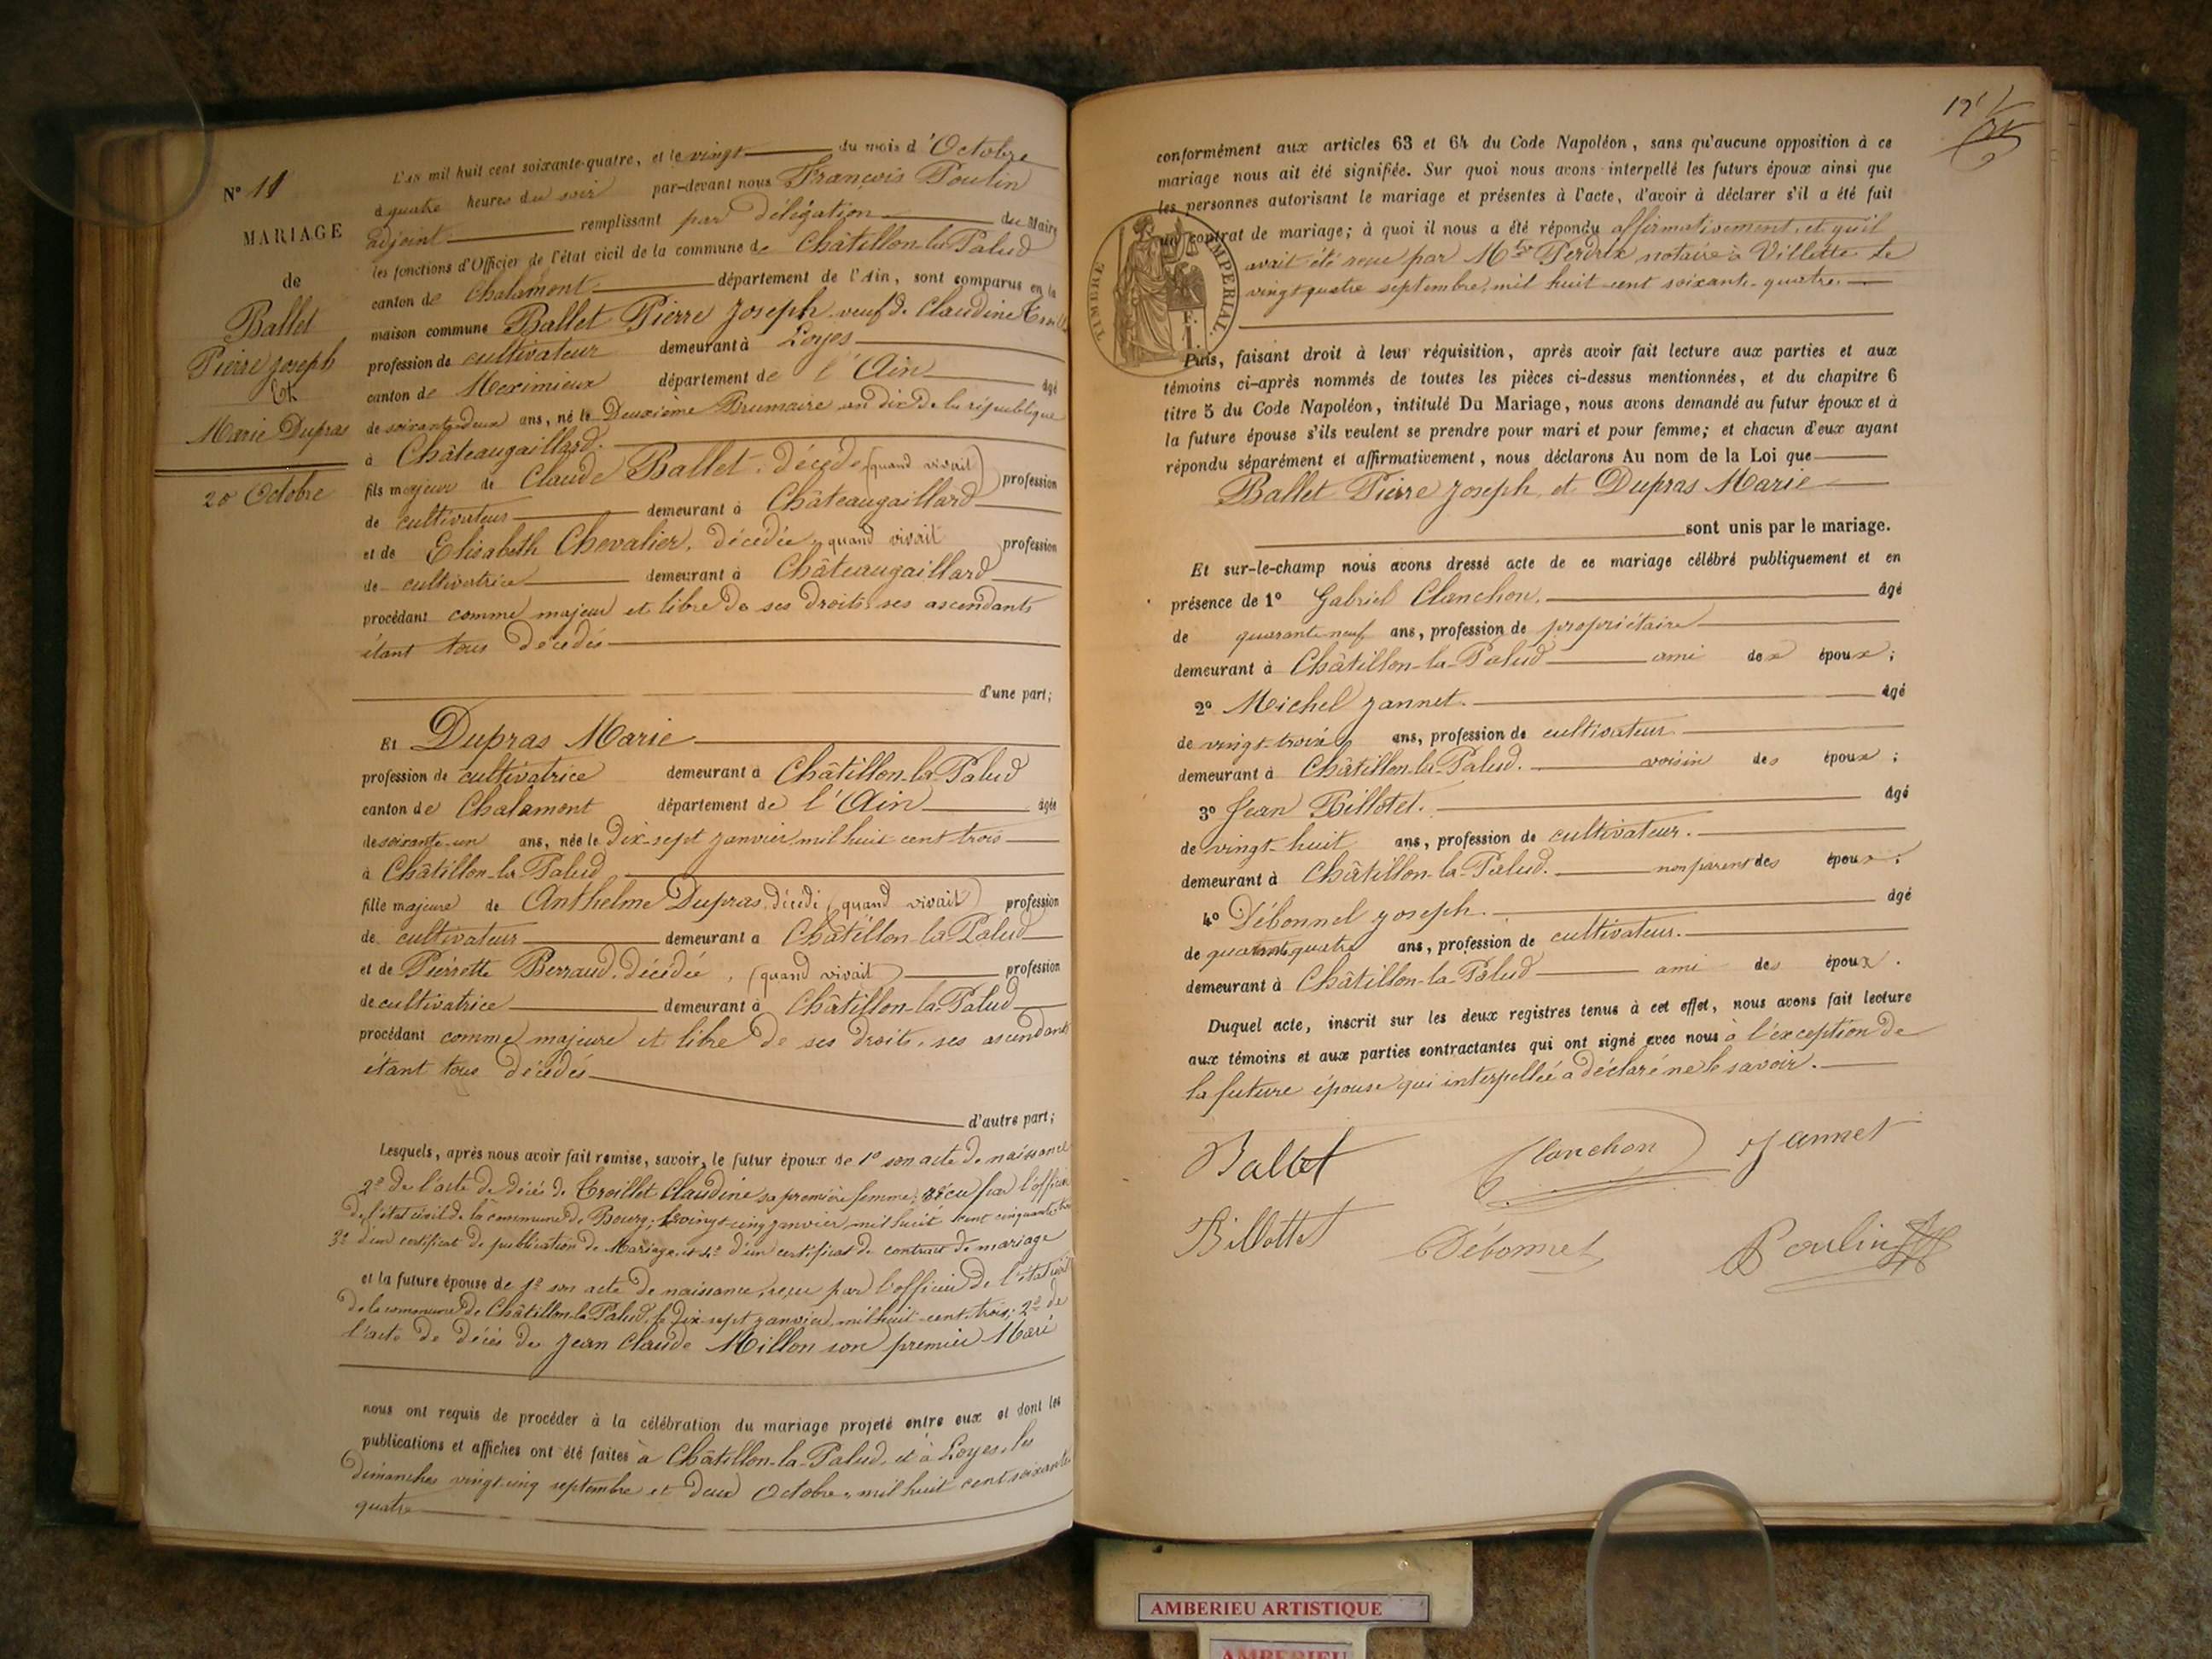 N° 11
MARIAGE
de
Ballet
Pierre Joseph
Et
Marie Dupras
20 Octobre
L'an mil huit cent soixante-quatre, et le vingt du mois d'Octobre
à quatre heures du soir par-devant nous François Poulin
adjoint remplissant par délégation du Maire
les fonctions d'Officier de l'état civil de la commune de Châtillon-la-Palud
canton de Chalamont département de l'Ain, sont comparus en la
maison commune Ballet Pierre Joseph veuf de Claudine
profession de cultivateur demeurant à Loyes
canton de Meximieux département de l'Ain âgé
de soixante-deux ans, né le Deuxième Brumaire an dix de la république
à Châteaugaillard.
fils majeur de Claude Ballet, décédé (quand vivait) profession
de cultivateur demeurant à Châteaugaillard
et de Elisabeth Chevalier, décédée, quand vivait profession
de cultivatrice demeurant à Châteaugaillard
procédant comme majeur et libre de ses droits ses ascendants
étant tous décédés
d'une part;
Et Dupras Marie
profession de cultivatrice demeurant à Châtillon-la-Palud
canton de Chalamont département de l'Ain âgée
de soixante-un ans, née le Dix-sept janvier mil huit cent trois
à Châtillon-la-Palud
fille majeure de Anthelme Dupras, décédé (quand vivait) profession
de cultivateur demeurant à Châtillon-la-Palud
et de Pierrette Berraud, décédée, (quand vivait) profession
de cultivatrice demeurant à Châtillon-la-Palud
procédant comme majeure et libre de ses droits, ses ascendants
étant tous décédés
d'autre part;
Lesquels, après nous avoir fait remise, savoir, le futur époux de 1° son acte de naissance
2° de l'acte de décès de Troillet Claudine sa première femme, reçu par l'officier
de l'état civil de la commune de Bourg, le vingt-cinq janvier mil huit cent cinquante
3° d'un certificat de publication de Mariage, et 4° d'un certificat de contrat de mariage
et la future épouse de 1° son acte de naissance, reçu par l'officier de l'état civil
de la commune de Châtillon-la-Palud, le Dix-sept janvier mil huit cent trois; 2° de
l'acte de décès de Jean Claude Millon son premier Mari
nous ont requis de procéder à la célébration du mariage projeté entre eux et dont les
publications et affiches ont été faites à Châtillon-la-Palud, et à Loyes, les
dimanches vingt-cinq septembre et deux Octobre, mil huit cent soixante
quatre
conformément aux articles 63 et 64 du Code Napoléon, sans qu'aucune opposition à ce
mariage nous ait été signifiée. Sur quoi nous avons interpellé les futurs époux ainsi que
les personnes autorisant le mariage et présentes à l'acte, d'avoir à déclarer s'il a été fait
un contrat de mariage; à quoi il nous a été répondu affirmativement, et qu'il
avait été reçu par Mtre Perdrix notaire à Villette le
vingt quatre septembre, mil huit cent soixante-quatre.
TIMBRE IMPERIAL.
Puis, faisant droit à leur réquisition, après avoir fait lecture aux parties et aux
témoins ci-après nommés de toutes les pièces ci-dessus mentionnées, et du chapitre 6
titre 5 du Code Napoléon, intitulé Du Mariage, nous avons demandé au futur époux et à
la future épouse s'ils veulent se prendre pour mari et pour femme; et chacun d'eux ayant
répondu séparément et affirmativement, nous déclarons Au nom de la Loi que
Ballet Pierre Joseph, et Dupras Marie
sont unis par le mariage.
Et sur-le-champ nous avons dressé acte de ce mariage célébré publiquement et en
présence de 1° Gabriel Clanchon. âgé
de quarante neuf ans, profession de propriétaire
demeurant à Châtillon-la-Palud ami des époux;
2° Michel Jannet. âgé
de vingt-trois ans, profession de cultivateur
demeurant à Châtillon-la-Palud. voisin des époux;
3° Jean Billotet. âgé
de vingt-huit ans, profession de cultivateur.
demeurant à Châtillon-la-Palud. non parent des époux;
4° Débonnel Joseph. âgé
de quarante quatre ans, profession de cultivateur.
demeurant à Châtillon-la-Palud ami des époux.
Duquel acte, inscrit sur les deux registres tenus à cet effet, nous avons fait lecture
aux témoins et aux parties contractantes qui ont signé avec nous à l'exception de
la future épouse qui interpellée a déclaré ne le savoir.
Ballet Clanchon Jannet
Billottet Débonnel Poulin
AMBERIEU ARTISTIQUE
AMBERIEU